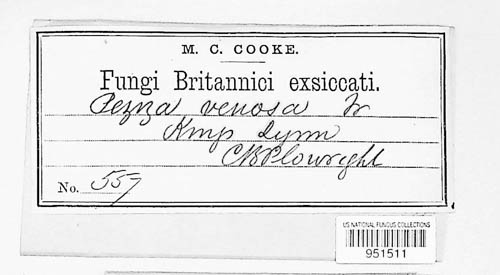 M. C. COOKE.
Fungi Britannici exsiccati.
Peziza venosa Fr
King Lynn
C B Plowright
No. 557
US NATIONAL FUNGUS COLLECTIONS
951511